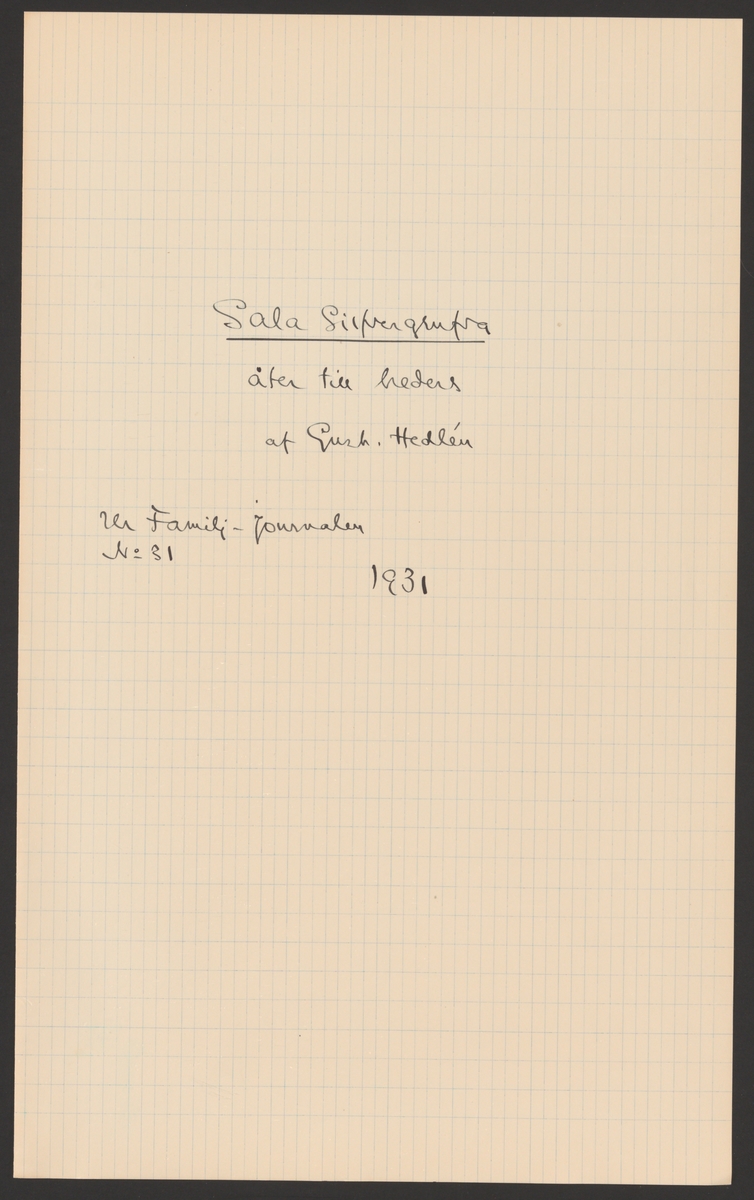 Sala Silfvergrufva
åter till heders
af Gust. Hedlén
Ur Familj-journalen
No 31
1931